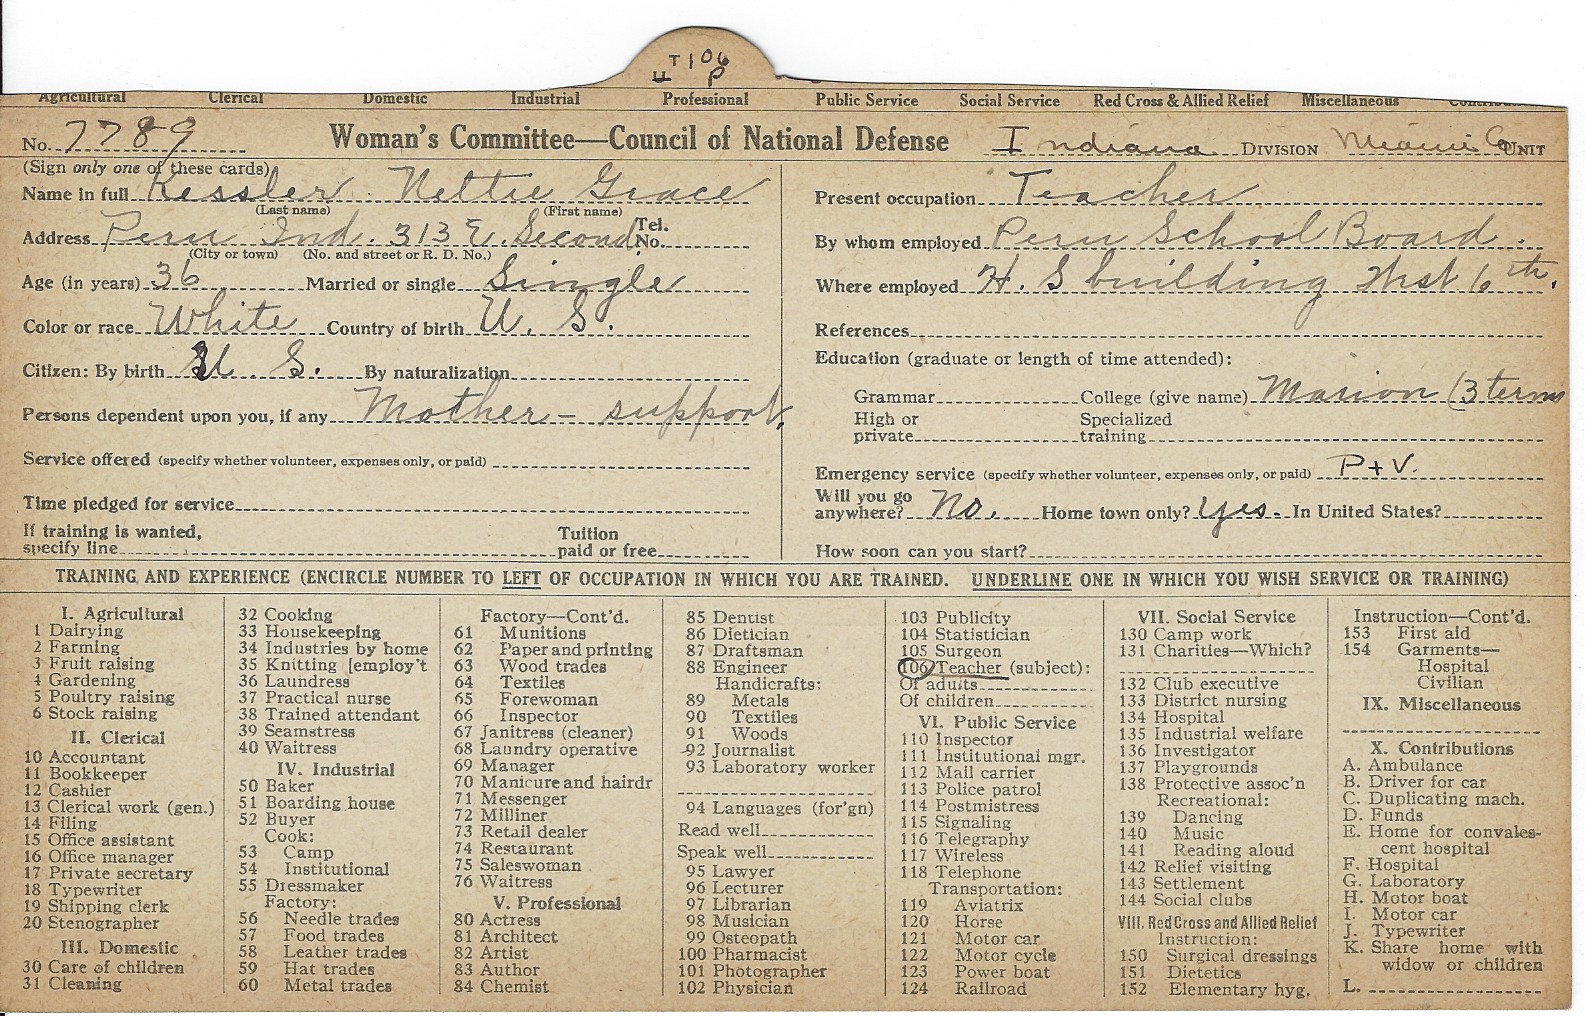 T 106
U P
Agricultural Clerical Domestic Industrial Professional Public Service Social Service Red Cross & Allied Relief Miscellaneous
No. 7789 Woman's Committee—Council of National Defense Indiana DIVISION Miami Co UNIT
(Sign only one of these cards)
Name in full Kessler Nettie Grace
(Last name) (First name)
Address Peru Ind. 313 E. Second Tel. No.
(City or town) (No. and street or R. D. No.)
Age (in years) 36 Married or single Single
Color or race White Country of birth U. S.
Citizen: By birth U. S. By naturalization
Persons dependent upon you, if any Mother – support.
Service offered (specify whether volunteer, expenses only, or paid)
Time pledged for service
If training is wanted, specify line Tuition paid or free
Present occupation Teacher
By whom employed Peru School Board.
Where employed H. S building West 6th.
References
Education (graduate or length of time attended):
Grammar College (give name) Marion (3 terms
High or private Specialized training
Emergency service (specify whether volunteer, expenses only, or paid) P + V.
Will you go anywhere? No. Home town only? Yes. In United States?
How soon can you start?
TRAINING AND EXPERIENCE (ENCIRCLE NUMBER TO LEFT OF OCCUPATION IN WHICH YOU ARE TRAINED. UNDERLINE ONE IN WHICH YOU WISH SERVICE OR TRAINING)
I. Agricultural
1 Dairying
2 Farming
3 Fruit raising
4 Gardening
5 Poultry raising
6 Stock raising
II. Clerical
10 Accountant
11 Bookkeeper
12 Cashier
13 Clerical work (gen.)
14 Filing
15 Office assistant
16 Office manager
17 Private secretary
18 Typewriter
19 Shipping clerk
20 Stenographer
III. Domestic
30 Care of children
31 Cleaning
32 Cooking
33 Housekeeping
34 Industries by home
35 Knitting [employ't
36 Laundress
37 Practical nurse
38 Trained attendant
39 Seamstress
40 Waitress
IV. Industrial
50 Baker
51 Boarding house
52 Buyer
Cook:
53 Camp
54 Institutional
55 Dressmaker
Factory:
56 Needle trades
57 Food trades
58 Leather trades
59 Hat trades
60 Metal trades
Factory—Cont'd.
61 Munitions
62 Paper and printing
63 Wood trades
64 Textiles
65 Forewoman
66 Inspector
67 Janitress (cleaner)
68 Laundry operative
69 Manager
70 Manicure and hairdr
71 Messenger
72 Milliner
73 Retail dealer
74 Restaurant
75 Saleswoman
76 Waitress
V. Professional
80 Actress
81 Architect
82 Artist
83 Author
84 Chemist
85 Dentist
86 Dietician
87 Draftsman
88 Engineer
Handicrafts:
89 Metals
90 Textiles
91 Woods
92 Journalist
93 Laboratory worker
94 Languages (for'gn)
Read well
Speak well
95 Lawyer
96 Lecturer
97 Librarian
98 Musician
99 Osteopath
100 Pharmacist
101 Photographer
102 Physician
103 Publicity
104 Statistician
105 Surgeon
106 Teacher (subject):
Of adults
Of children
VI. Public Service
110 Inspector
111 Institutional mgr.
112 Mail carrier
113 Police patrol
114 Postmistress
115 Signaling
116 Telegraphy
117 Wireless
118 Telephone
Transportation:
119 Aviatrix
120 Horse
121 Motor car
122 Motor cycle
123 Power boat
124 Railroad
VII. Social Service
130 Camp work
131 Charities—Which?
132 Club executive
133 District nursing
134 Hospital
135 Industrial welfare
136 Investigator
137 Playgrounds
138 Protective assoc'n
Recreational:
139 Dancing
140 Music
141 Reading aloud
142 Relief visiting
143 Settlement
144 Social clubs
VIII. Red Cross and Allied Relief
Instruction:
150 Surgical dressings
151 Dietetics
152 Elementary hyg.
Instruction—Cont'd.
153 First aid
154 Garments—
Hospital
Civilian
IX. Miscellaneous
X. Contributions
A. Ambulance
B. Driver for car
C. Duplicating mach.
D. Funds
E. Home for convales-
cent hospital
F. Hospital
G. Laboratory
H. Motor boat
I. Motor car
J. Typewriter
K. Share home with
widow or children
L.